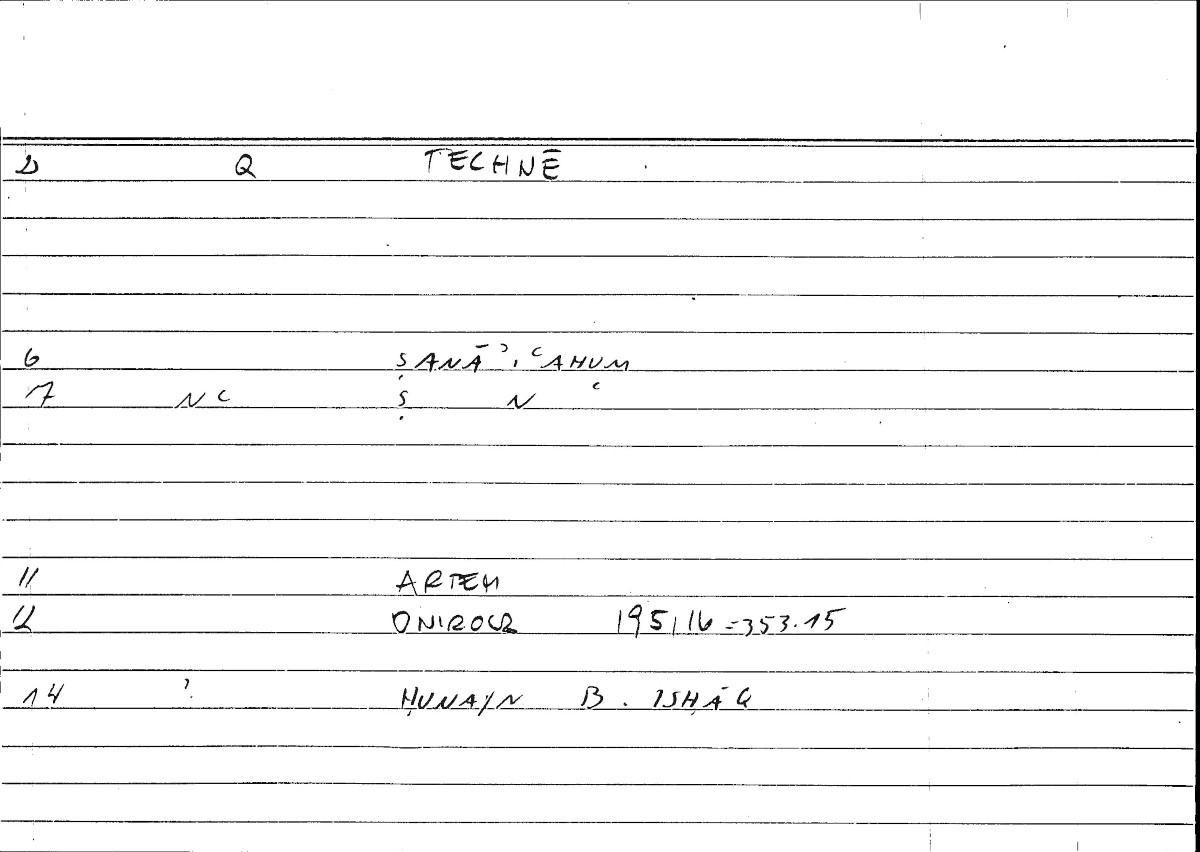 2 Q TECHNĒ
6 ṢANĀʾIʿAHUM
7 Nʿ Ṣ N ʿ
11 ARTEM
12 ONIROCR 195,16 = 353.15
14 ʾ. ḤUNAYN B. ISḤĀQ